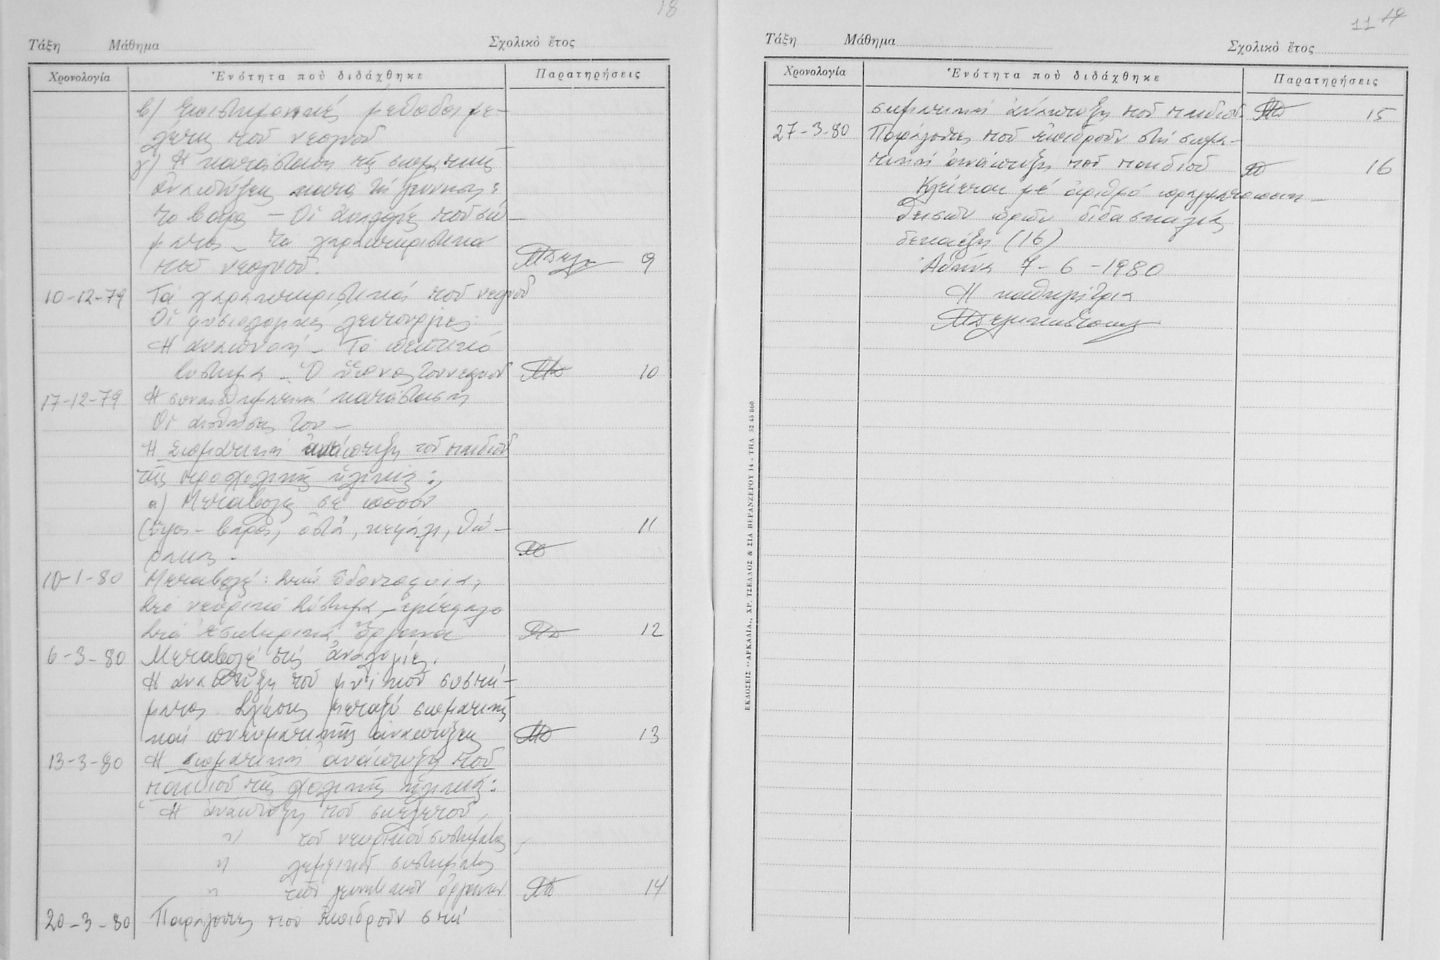 18
Τάξη Μάθημα Σχολικὸ ἔτος
Χρονολογία Ἑνότητα ποὺ διδάχθηκε Παρατηρήσεις
β) Ἐπιστημονικές μέθοδοι με-
λέτης τοῦ νεογνοῦ
γ) Ἡ κατάσταση τῆς σωματικῆς
ἀναπτύξεως κατά τή γέννηση:
το βάρος – Οἱ ἀναλογίες τοῦ σώ-
ματος – τα χαρακτηριστικά
τοῦ νεογνοῦ. 9
10-12-79 Τά χαρακτηριστικά τοῦ νεογνοῦ
Οἱ φυσιολογικές λειτουργίες:
Ἡ ἀναπνοή – Τό πεπτικό
σύστημα – Ὁ ὕπνος του νεογνοῦ 10
17-12-79 Ἡ συναισθηματική κατάσταση
Οἱ αἰσθήσεις του –
Ἡ Σωματική ἀνάπτυξη τοῦ παιδιοῦ
τῆς προσχολικῆς ἡλικίας:
α) Μεταβολές σέ ποσόν
(ὕψος – βάρος, ὀστᾶ, κεφάλι, θώ- 11
ρακας –
10-1-80 Μεταβολές: στήν ὀδοντοφυΐα,
στό νευρικό σύστημα – ἐγκέφαλο
στά ἐσωτερικά ὄργανα 12
6-3-80 Μεταβολές στίς ἀναλογίες.
Ἡ ἀνάπτυξη τοῦ μυϊκοῦ συστή-
ματος. Σχέσεις μεταξύ σωματικῆς
καί πνευματικῆς ἀναπτύξεως 13
13-3-80 Ἡ σωματική ἀνάπτυξη τοῦ
παιδιοῦ τῆς σχολικῆς ἡλικίας:
Ἡ ἀνάπτυξη τοῦ σκελετοῦ,
" τοῦ νευρικοῦ συστήματος,
" λεμφικοῦ συστήματος
" τῶν γεννητικῶν ὀργάνων 14
20-3-80 Παράγοντες πού ἐπιδροῦν στή
11 19
Τάξη Μάθημα Σχολικὸ ἔτος
Χρονολογία Ἑνότητα ποὺ διδάχθηκε Παρατηρήσεις
σωματική ἀνάπτυξη τοῦ παιδιοῦ 15
27-3-80 Παράγοντες πού ἐπιδροῦν στή σωμα-
τική ἀνάπτυξη τοῦ παιδιοῦ 16
Κλείεται μέ ἀριθμό πραγματοποιη-
θεισῶν ὡρῶν διδασκαλίας
δεκαέξη (16)
Ἀθήνα 7-6-1980
Ἡ καθηγήτρια
ΕΚΔΟΣΕΙΣ "ΑΡΚΑΔΙΑ,, ΧΡ. ΤΣΕΛΛΟΣ & ΣΙΑ ΒΕΡΑΝΖΕΡΟΥ 14 - ΤΗΛ. 52 45 860